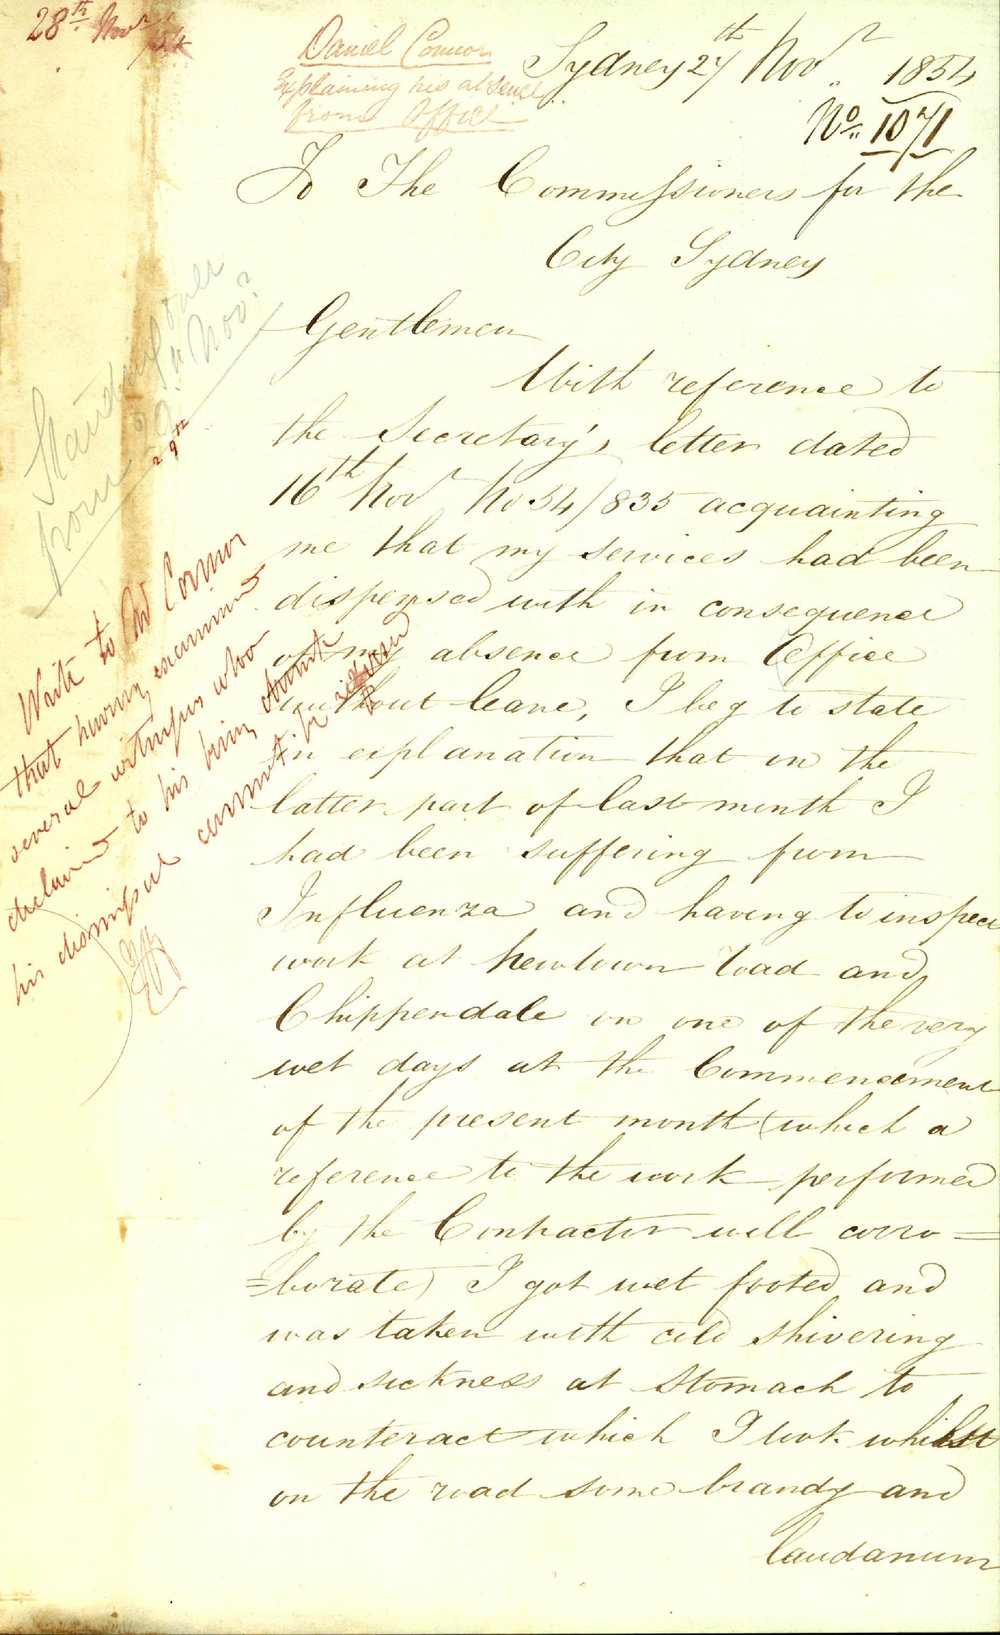 28th Novr /54
Daniel Connor
Explaining his absence
from Office
Sydney 27th Novr 1854
No. 1071
To The Commissioners for the
City Sydney
Gentlemen
With reference to
the Secretary's letter dated
16th Novr No 54/835 acquainting
me that my services had been
dispensed with in consequence
of my absence from Office
without leave, I beg to state
in explanation that in the
latter part of last month I
had been suffering from
Influenza and having to inspect
work at Newtown Road and
Chippendale on one of the very
wet days at the Commencement
of the present month (which a
reference to the work performed
by the Contractor will corro=
=borate) I got wet footed and
was taken with cold shivering
and sickness at Stomach to
counteract which I took whilst
on the road some brandy and
laudanum
Standing over
from 20th Novr
29th
Write to Mr Connor
that having examined
several witnesses who
declared to his being drunk
his dismissal cannot be